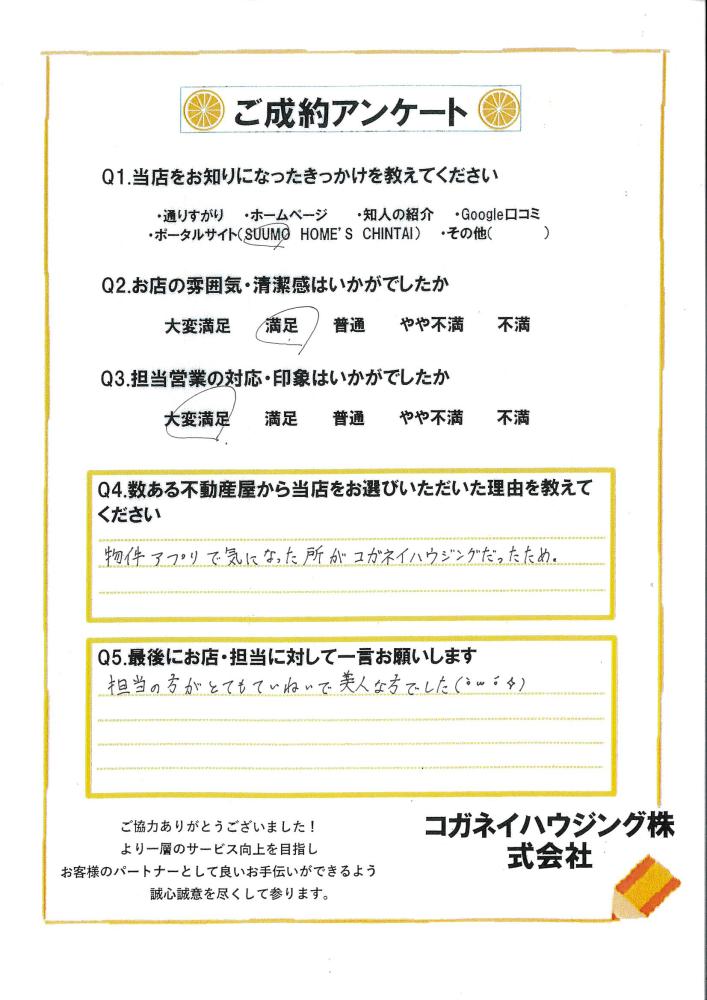 ご成約アンケート
Q1.当店をお知りになったきっかけを教えてください
・通りすがり ・ホームページ ・知人の紹介 ・Google口コミ
・ポータルサイト(SUUMO HOME'S CHINTAI) ・その他( )
Q2.お店の雰囲気・清潔感はいかがでしたか
大変満足 満足 普通 やや不満 不満
Q3.担当営業の対応・印象はいかがでしたか
大変満足 満足 普通 やや不満 不満
Q4.数ある不動産屋から当店をお選びいただいた理由を教えて
ください
物件アプリで気になった所がコガネイハウジングだったため.
Q5.最後にお店・担当に対して一言お願いします
担当の方がとてもていねいで美人な方でした
ご協力ありがとうございました！
より一層のサービス向上を目指し
お客様のパートナーとして良いお手伝いができるよう
誠心誠意を尽くして参ります。
コガネイハウジング株
式会社